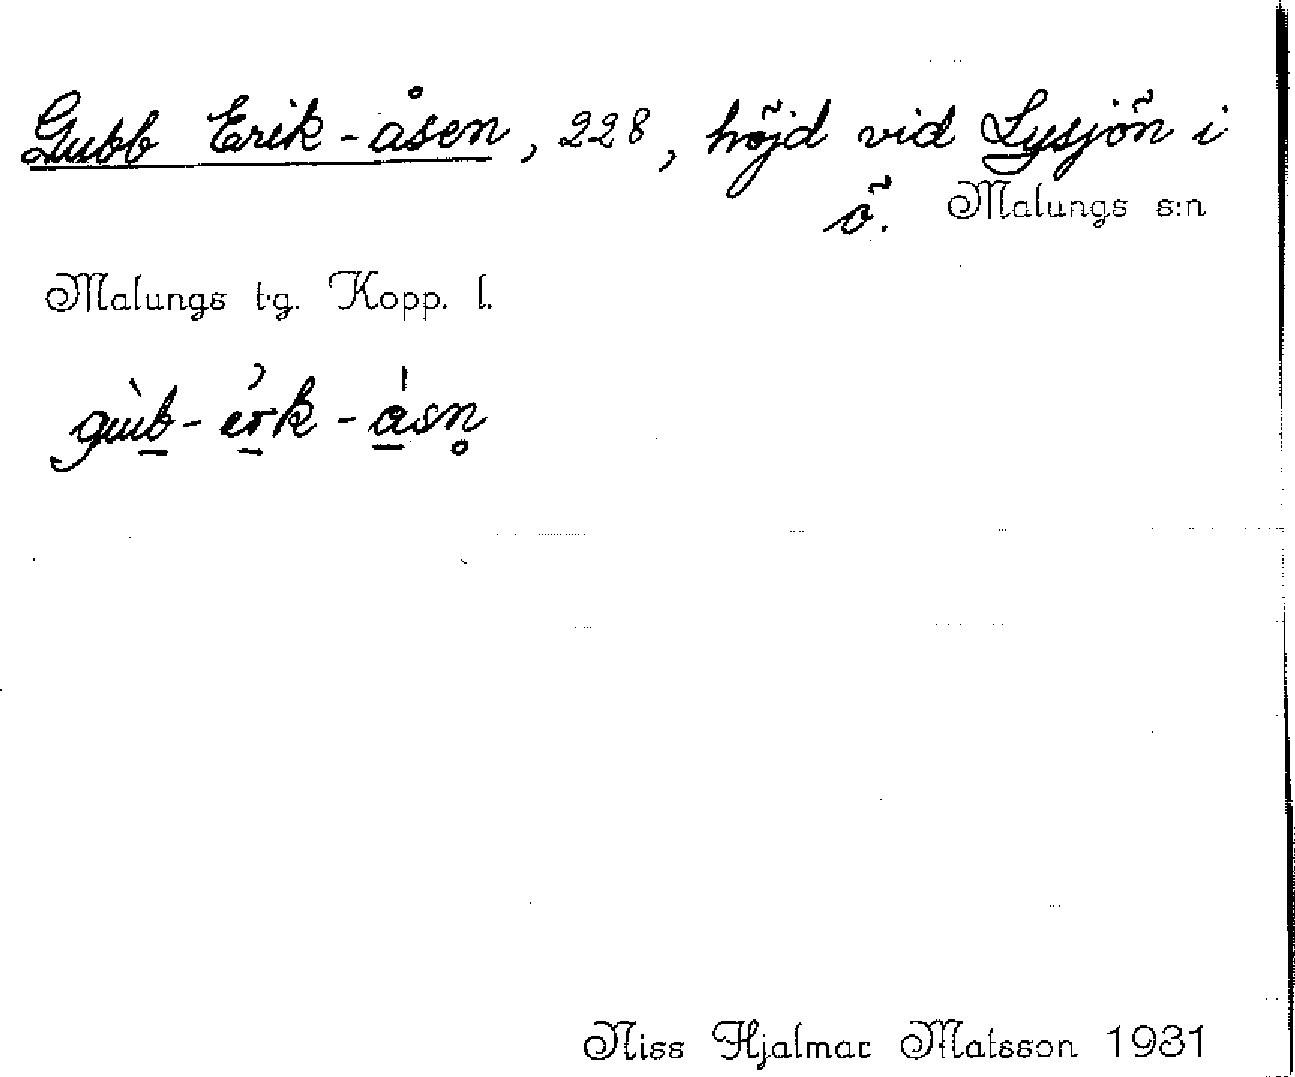 Gubb Erik-åsen, 228, höjd vid Lysjön i
ö. Malungs s:n
Malungs t.g. Kopp. l.
gub̠-èr̠k-a̠sn̥
Niss Hjalmar Matsson 1931